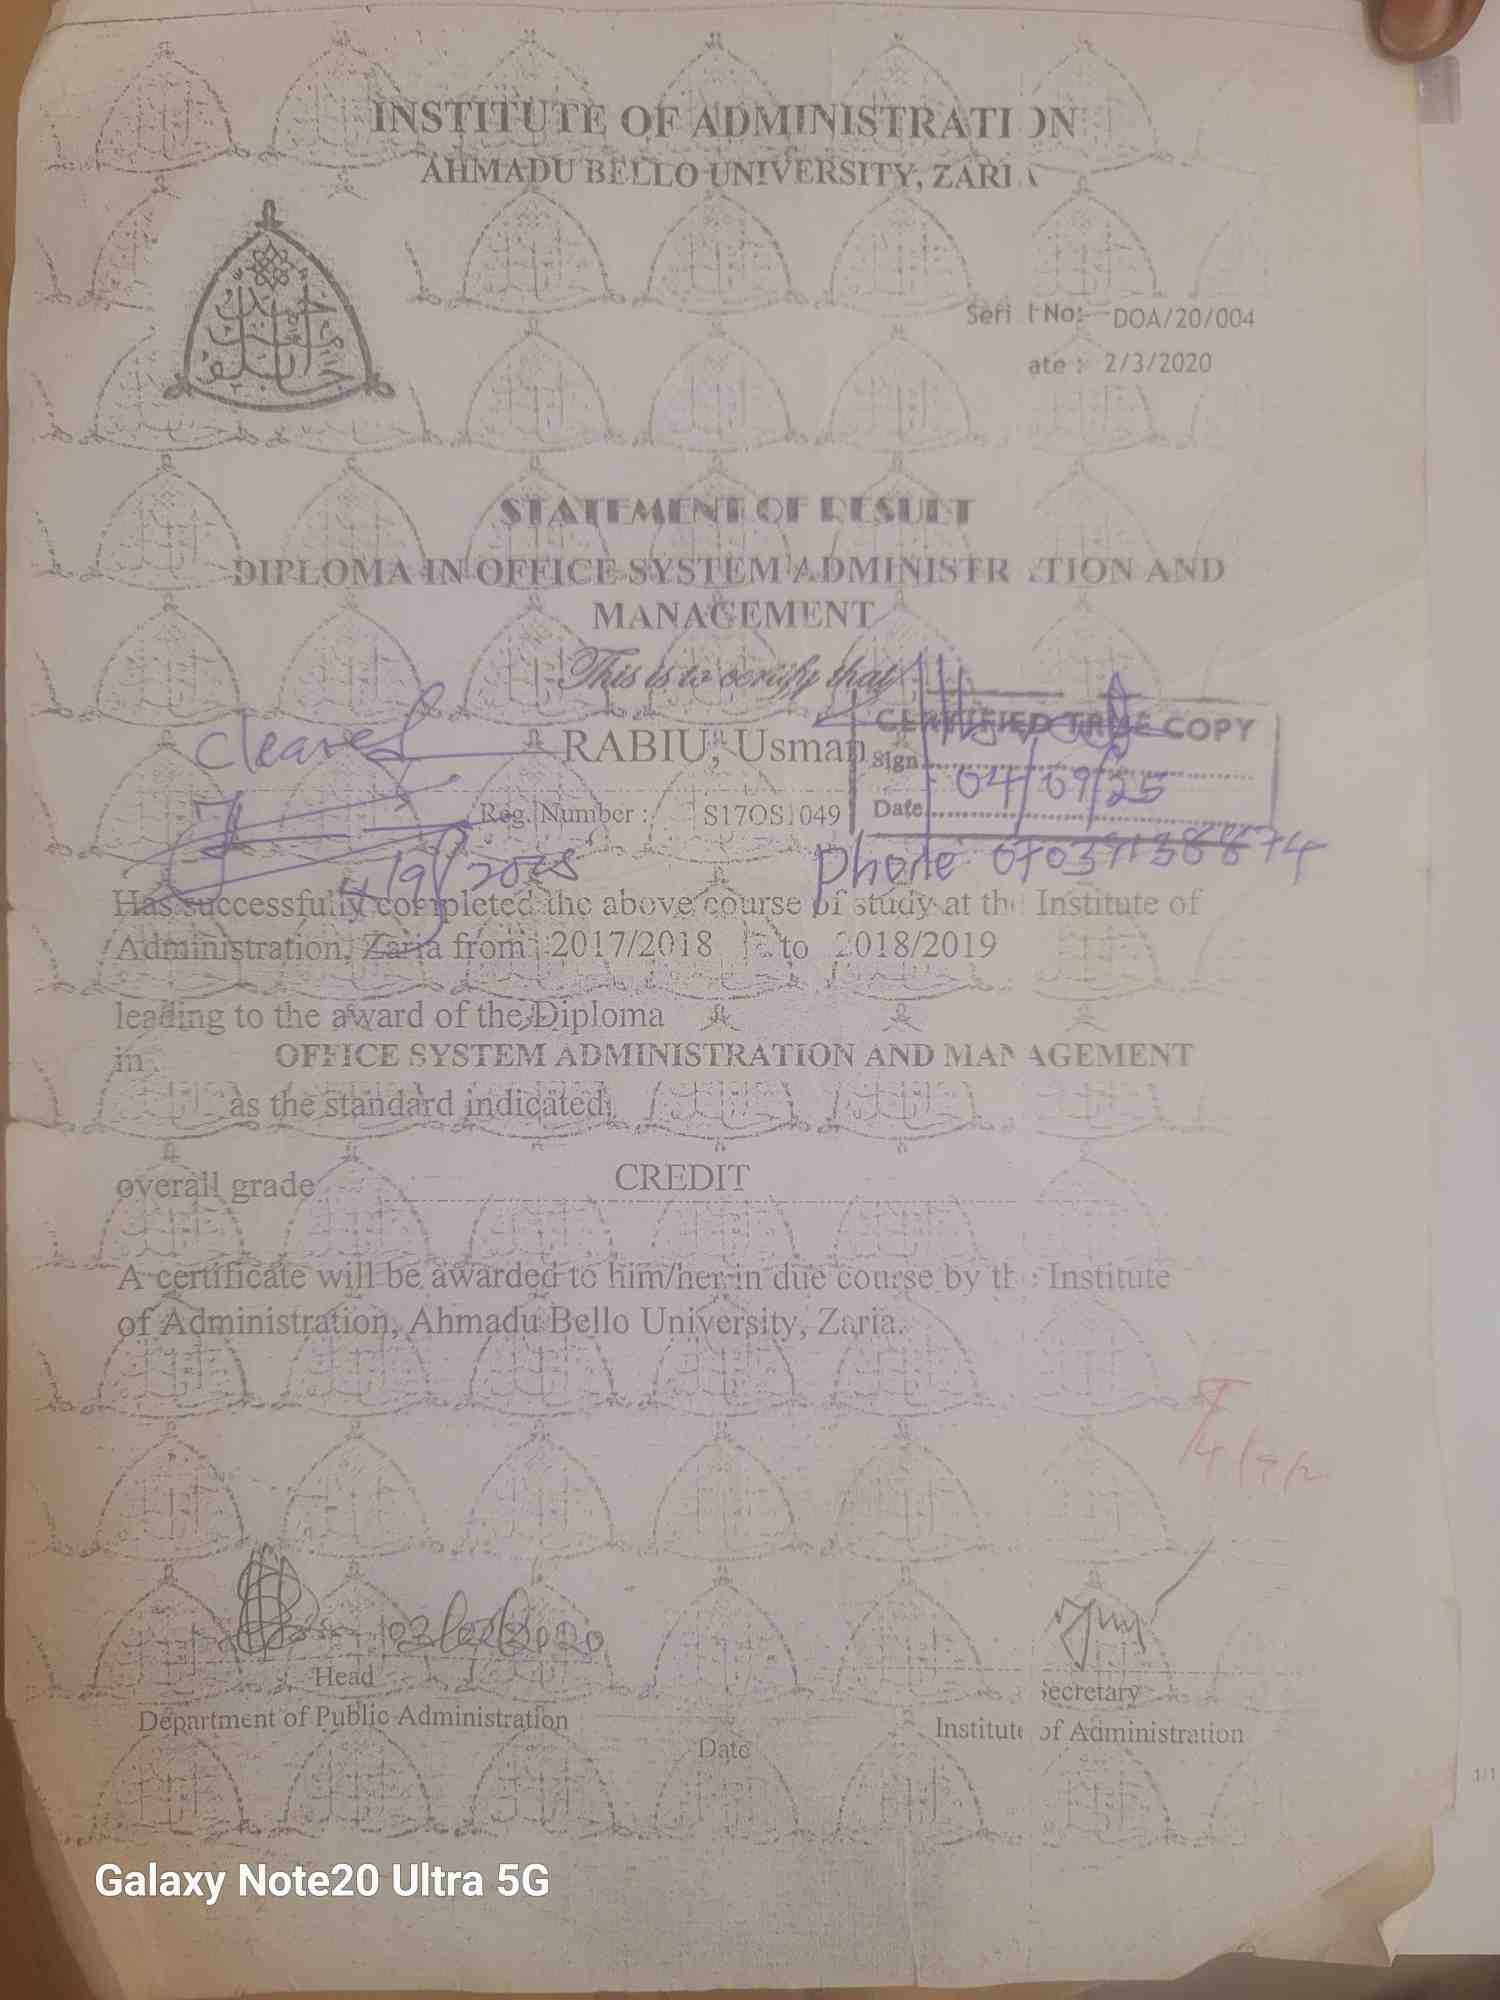 INSTITUTE OF ADMINISTRATI ON
AHMADU BELLO UNIVERSITY, ZARI A
Seri l No: DOA/20/004
ate : 2/3/2020
STATEMENT OF RESULT
DIPLOMA IN OFFICE SYSTEM ADMINISTR TION AND
MANAGEMENT
This is to certify that
Cleared
RABIU, Usman
CERTIFIED TRUE COPY
Sign
04/09/25
Date
Reg. Number : S17OS1049
Phone 07039138874
4/9/2025
Has successfully completed the above course of study at the Institute of
Administration, Zaria from 2017/2018 to 2018/2019
leading to the award of the Diploma
in OFFICE SYSTEM ADMINISTRATION AND MAN AGEMENT
as the standard indicated
overall grade CREDIT
A certificate will be awarded to him/her in due course by the Institute
of Administration, Ahmadu Bello University, Zaria.
Head
Secretary
Department of Public Administration
Date
Institute of Administration
1/1
Galaxy Note20 Ultra 5G